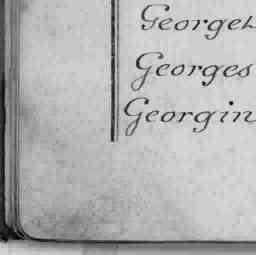 George
Georges
Georgin